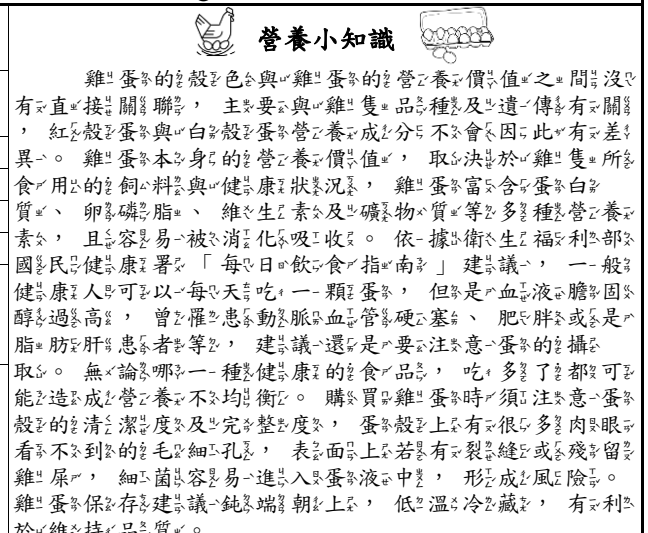 營養小知識
雞蛋的殼色與雞蛋的營養價值之間沒
有直接關聯，主要與雞隻品種及遺傳有關
，紅殼蛋與白殼蛋營養成分不會因此有差
異。雞蛋本身的營養價值，取決於雞隻所
食用的飼料與健康狀況，雞蛋富含蛋白
質、卵磷脂、維生素及礦物質等多種營養
素，且容易被消化吸收。依據衛生福利部
國民健康署「每日飲食指南」建議，一般
健康人可以每天吃一顆蛋，但是血液膽固
醇過高，曾罹患動脈血管硬塞、肥胖或是
脂肪肝患者等，建議還是要注意蛋的攝
取。無論哪一種健康的食品，吃多了都可
能造成營養不均衡。購買雞蛋時須注意蛋
殼的清潔度及完整度，蛋殼上有很多肉眼
看不到的毛細孔，表面上若有裂縫或殘留
雞屎，細菌容易進入蛋液中，形成風險。
雞蛋保存建議鈍端朝上，低溫冷藏，有利
於維持品質。